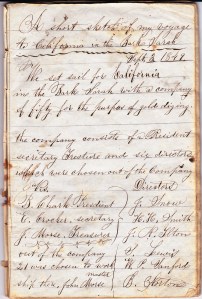 A short sketch of my voyage
to California in the Bark Sarah
Sept 3 1849
We set sail for California
in the Bark Sarah with a company
of fifty for the purpos of gold diging.
the company consists of a President
secretary Treasurer and six directors
which were chosen out of the Company
Directors
S. Clark President
J. Snow
C. Crocker, secretary
H. H. Smith
J. Morse. Treasurer
out of the company
it was chosen to work
W. Sanford
ship viz. John Morse